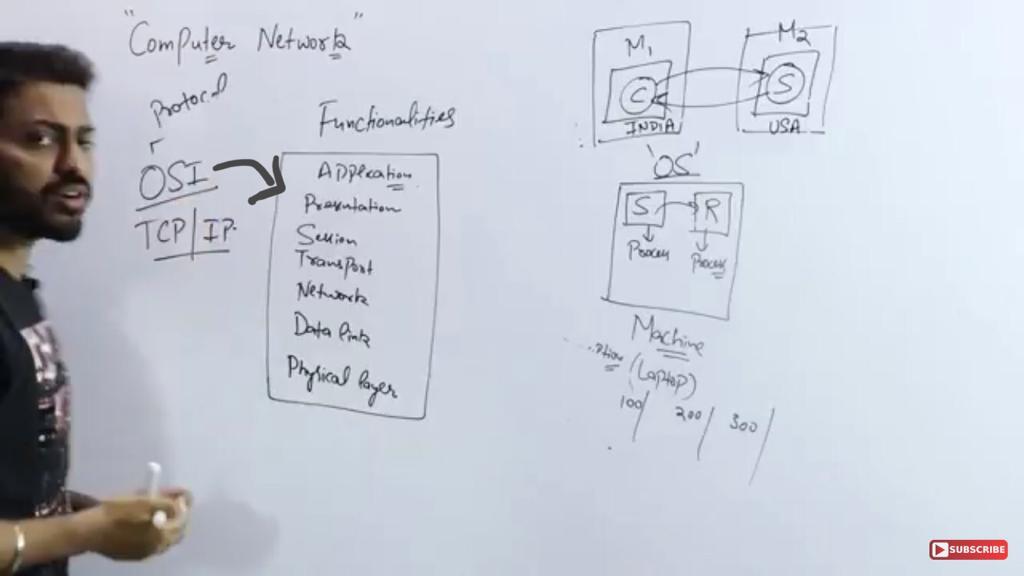 "Computer Network"
Protocol
OSI
TCP/IP
Functionalities
Application
Presentation
Session
Transport
Network
Data link
Physical layer
M1
M2
C
S
INDIA
USA
'OS'
S
R
Process
Process
Machine
(Laptop)
100/ 200/ 300/
SUBSCRIBE